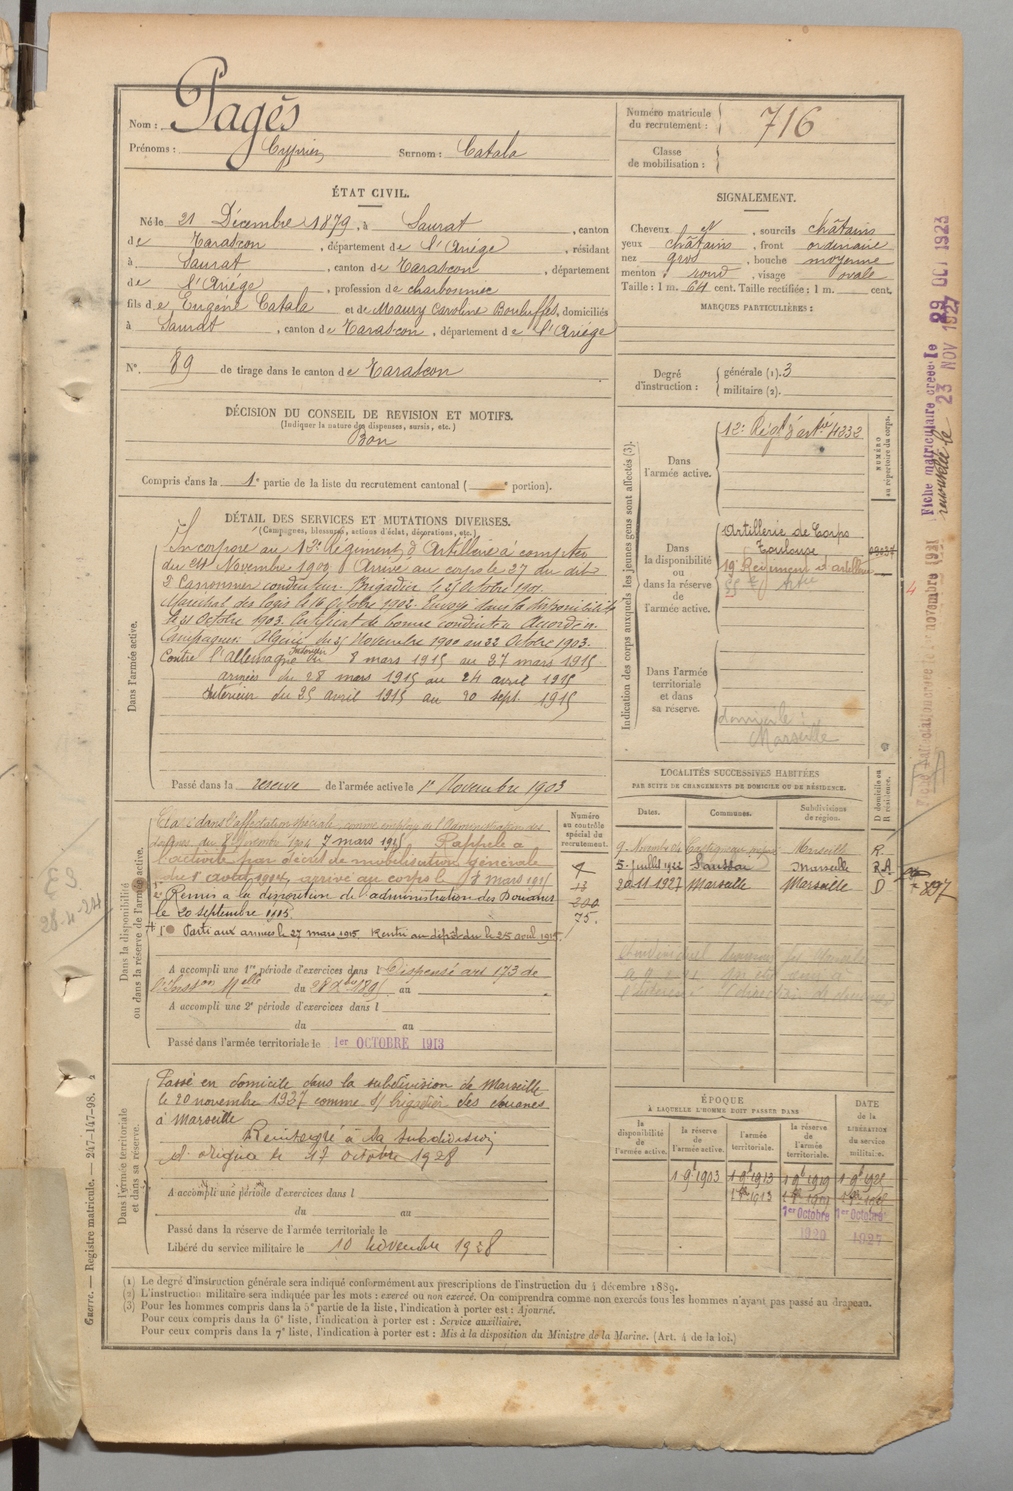 Nom : Pagès
Prénoms : Cyprien Surnom : Catala
Numéro matricule du recrutement : 716
Classe de mobilisation :
ÉTAT CIVIL.
Né le 21 Décembre 1879, à Saurat, canton
de Tarascon, département de l'Ariège, résidant
à Saurat, canton de Tarascon, département
de l'Ariège, profession de charbonnier
fils de Eugène Catala et de Maury Caroline, domiciliés
à Saurat, canton de Tarascon, département de l'Ariège
N°. 89 de tirage dans le canton de Tarascon
SIGNALEMENT.
Cheveux et, sourcils châtains
yeux châtains, front ordinaire
nez gros, bouche moyenne
menton rond, visage ovale
Taille : 1 m. 64 cent. Taille rectifiée : 1 m. cent.
MARQUES PARTICULIÈRES :
Degré d'instruction : générale (1). 3
militaire (2).
DÉCISION DU CONSEIL DE REVISION ET MOTIFS.
(Indiquer la nature des dispenses, sursis, etc.)
Bon
Compris dans la 1e partie de la liste du recrutement cantonal ( e portion).
DÉTAIL DES SERVICES ET MUTATIONS DIVERSES.
(Campagnes, blessures, actions d'éclat, décorations, etc.)
Dans l'armée active.
Incorporé au 12e Régiment d'Artillerie à compter
du Novembre 1900 Arrivé au corps le 27 du dit
2e Canonnier conducteur. Brigadier le Octobre 1901.
Maréchal des logis le 16 Octobre 1902. Envoyé dans la disponibilité
le 31 Octobre 1903. Certificat de bonne conduite Accordé.
Campagnes: Algérie du Novembre 1900 au 22 Octobre 1903.
Contre l'Allemagne Intérieur du 8 mars 1915 au 27 mars 1915
armées du 28 mars 1915 au 24 avril 1915
Intérieur du 25 avril 1915 au 20 sept. 1915
Passé dans la réserve de l'armée active le 1er Novembre 1903
Indication des corps auxquels les jeunes gens sont affectés (3).
NUMÉRO au répertoire du corps.
Dans l'armée active.
12e Régt d'artie 4232
Dans la disponibilité ou dans la réserve de l'armée active.
Artillerie de Corps
Toulouse
19e Régiment d'artillerie
Dans l'armée territoriale et dans sa réserve.
domicile :
Marseille
LOCALITÉS SUCCESSIVES HABITÉES
PAR SUITE DE CHANGEMENTS DE DOMICILE OU DE RÉSIDENCE.
Dates. Communes. Subdivisions de région. D domicile ou R résidence.
9 Novembre 04 Marseille R.
5 Juillet 1922 Marseille R.A
20.11.1927 Marseille Marseille D
Dans la disponibilité ou dans la réserve de l'armée active.
Numéro au contrôle spécial du recrutement.
75.
Classé dans l'affectation spéciale comme employé de l'Administration des
7 mars 1915 Rappelé à
l'activité par décret de mobilisation générale
du 1er août 1914, arrivé au corps le 8 mars 1915
Remis à la disposition de l'administration des Douanes
le 20 septembre 1915.
Parti aux armées le 27 mars 1915 Rentré au dépôt du le 25 avril 1915.
A accompli une 1re période d'exercices dans l Dispensé art 173 de
l'Inston Melle du au
A accompli une 2e période d'exercices dans l
du au
Passé dans l'armée territoriale le 1er OCTOBRE 1913
Dans l'armée territoriale et dans sa réserve.
Passé en domicile dans la subdivision de Marseille
le 20 novembre 1927 comme s/ brigadier des douanes
à Marseille
Réintégré à la subdivision
d'origine le 17 octobre 1928
A accompli une période d'exercices dans l
du au
Passé dans la réserve de l'armée territoriale le
Libéré du service militaire le 10 novembre 1928
ÉPOQUE
À LAQUELLE L'HOMME DOIT PASSER DANS
la disponibilité de l'armée active.
la réserve de l'armée active.
l'armée territoriale.
la réserve de l'armée territoriale.
DATE de la LIBÉRATION du service militaire.
1 9bre 1903 1 9bre 1913 1 9bre 1919
1er Octobre 1920
1er Octobre
(1) Le degré d'instruction générale sera indiqué conformément aux prescriptions de l'instruction du 4 décembre 1889.
(2) L'instruction militaire sera indiquée par les mots : exercé ou non exercé. On comprendra comme non exercés tous les hommes n'ayant pas passé au drapeau.
(3) Pour les hommes compris dans la 5e partie de la liste, l'indication à porter est : Ajourné.
Pour ceux compris dans la 6e liste, l'indication à porter est : Service auxiliaire.
Pour ceux compris dans la 7e liste, l'indication à porter est : Mis à la disposition du Ministre de la Marine. (Art. 4 de la loi.)
Guerre. — Registre matricule. — 247-147-98.
Fiche matriculaire créée le 29 OCT 1923
23 NOV 1927
897
28-4-24